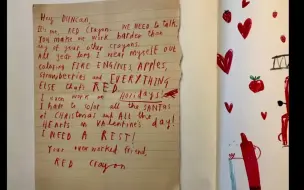 Hey DUNCAN,
It's me, RED Crayon. WE NEED to talk.
You make me work harder than
any of your other crayons.
All year long I wear myself out
coloring FIRE ENGINES, APPLES,
Strawberries and EVERYTHING
ELSE that's RED.
I even work on Holidays!
I have to color all the SANTAS
at CHRISTMAS and ALL the
HEARTS on VALENTINE'S day!
I NEED A REST!
Your overworked friend,
RED Crayon